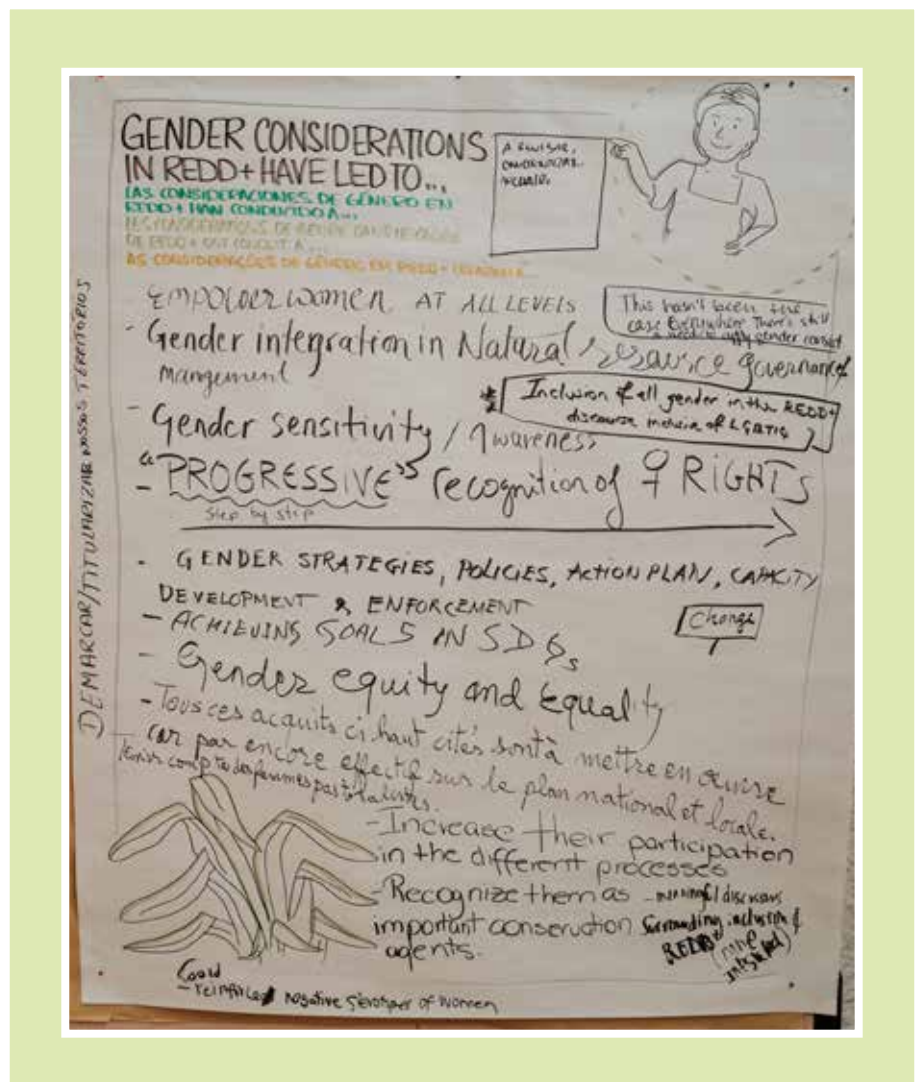 GENDER CONSIDERATIONS
IN REDD+ HAVE LED TO...
LAS CONSIDERACIONES DE GÉNERO EN
REDD+ HAN CONDUCIDO A...
LES CONSIDERATIONS DE GENRE DANS LE CADRE
DE REDD+ ONT CONDUIT A...
AS CONSIDERAÇÕES DE GÉNERO EM REDD+
A
INCLUIR.
EMPOWER WOMEN AT ALL LEVELS
This hasn't been the
case Everywhere There's still
a need to apply gender
- Gender integration in Natural resource governance
Mangement
* Inclusion of all gender in the REDD+
discourse of LGBTIQ
- Gender sensitivity / Awareness
- "PROGRESSIVE" recognition of ♀ RIGHTS
Step by step
- GENDER STRATEGIES, POLICIES, ACTION PLAN, CAPACITY
DEVELOPMENT & ENFORCEMENT
- ACHIEVING GOALS IN SDGs
Change
- Gender equity and Equality
- Tous ces acquits ci haut cités sont à mettre en œuvre
car pas encore effectif sur le plan national et locale.
- Tenir compte des femmes pastoralistes.
- Increase their participation
in the different processes
- Recognize them as
important conservation
agents.
- meaningful discussions
surrounding inclusion &
REDD+
(more
Could
- reinforce negative of women
DEMARCAR/TITULARIZAR NOSSOS TERRITORIOS